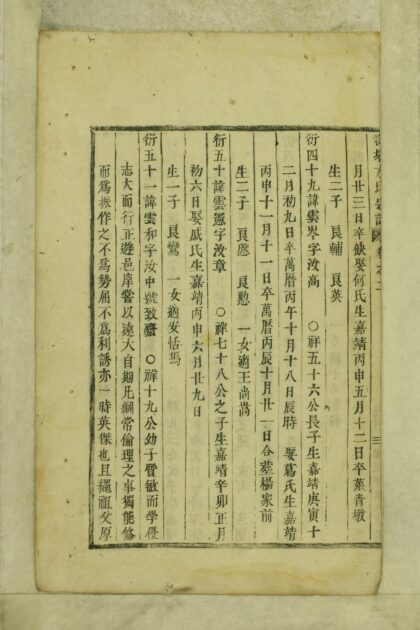 方氏宗譜 卷之二
月廿三日卒缺娶何氏生嘉靖丙申五月十二日卒葉青墩
生二子 良輔 良英
衍四十九諱雲岑字汝高 ○祥五十六公長子生嘉靖庚寅十
二月初九日卒萬曆丙午十月十八日辰時 娶葛氏生嘉靖
丙申十一月十一日卒萬曆丙辰十月廿一日合葬楊家前
生二子 良愿 良懃 一女適王尚嵩
衍五十諱雲 字汝章 ○祥七十八公之子生嘉靖辛卯正月
初六日娶戚氏生嘉靖丙申六月廿九日
生一子 良鸞 一女適安恬馬
衍五十一諱雲和字汝中號致齋 ○祥十九公幼子質敏而學優
志大而行正遊邑庠嘗以遠大自期凡綱常倫理之事獨能修
而爲振作之不爲勢屈不爲利誘亦一時英傑也且繩祖父厚